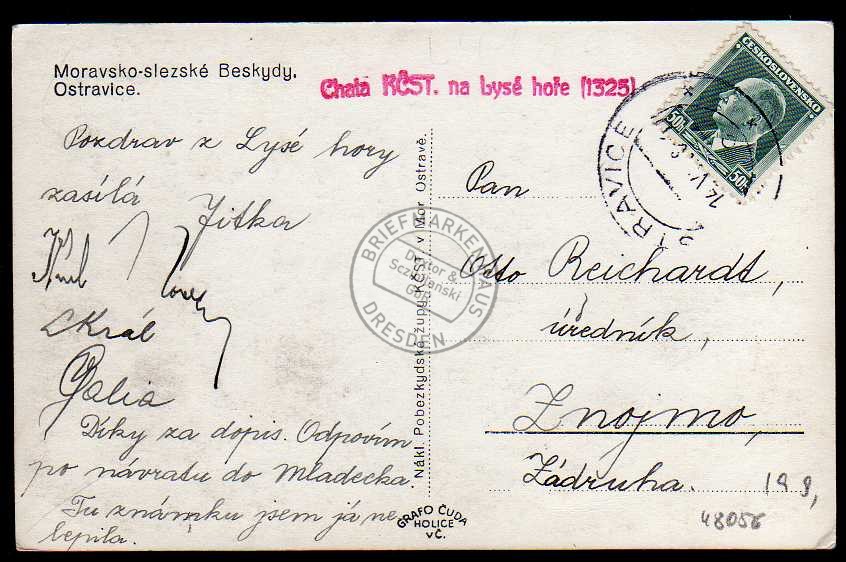 Moravsko-slezské Beskydy,
Ostravice.
Chata KČST. na Lysé hoře (1325)
Pozdrav z Lysé hory
zasílá Jitka
LKrál
Díky za dopis. Odpovím
po návratu do Mladecka.
Tu známku jsem já ne
lepila.
Nákl. Pobezkydské župy KČST v Mor. Ostravě.
GRAFO ČUDA
HOLICE
v Č.
ČESKOSLOVENSKO
50h
50h
RAVICE
Pan
Otto Reichardt,
úředník,
Znojmo,
Zádruha.
199,
48056
BRIEFMARKENHAUS
DRESDEN
Doktor &
Sczepański
GbR